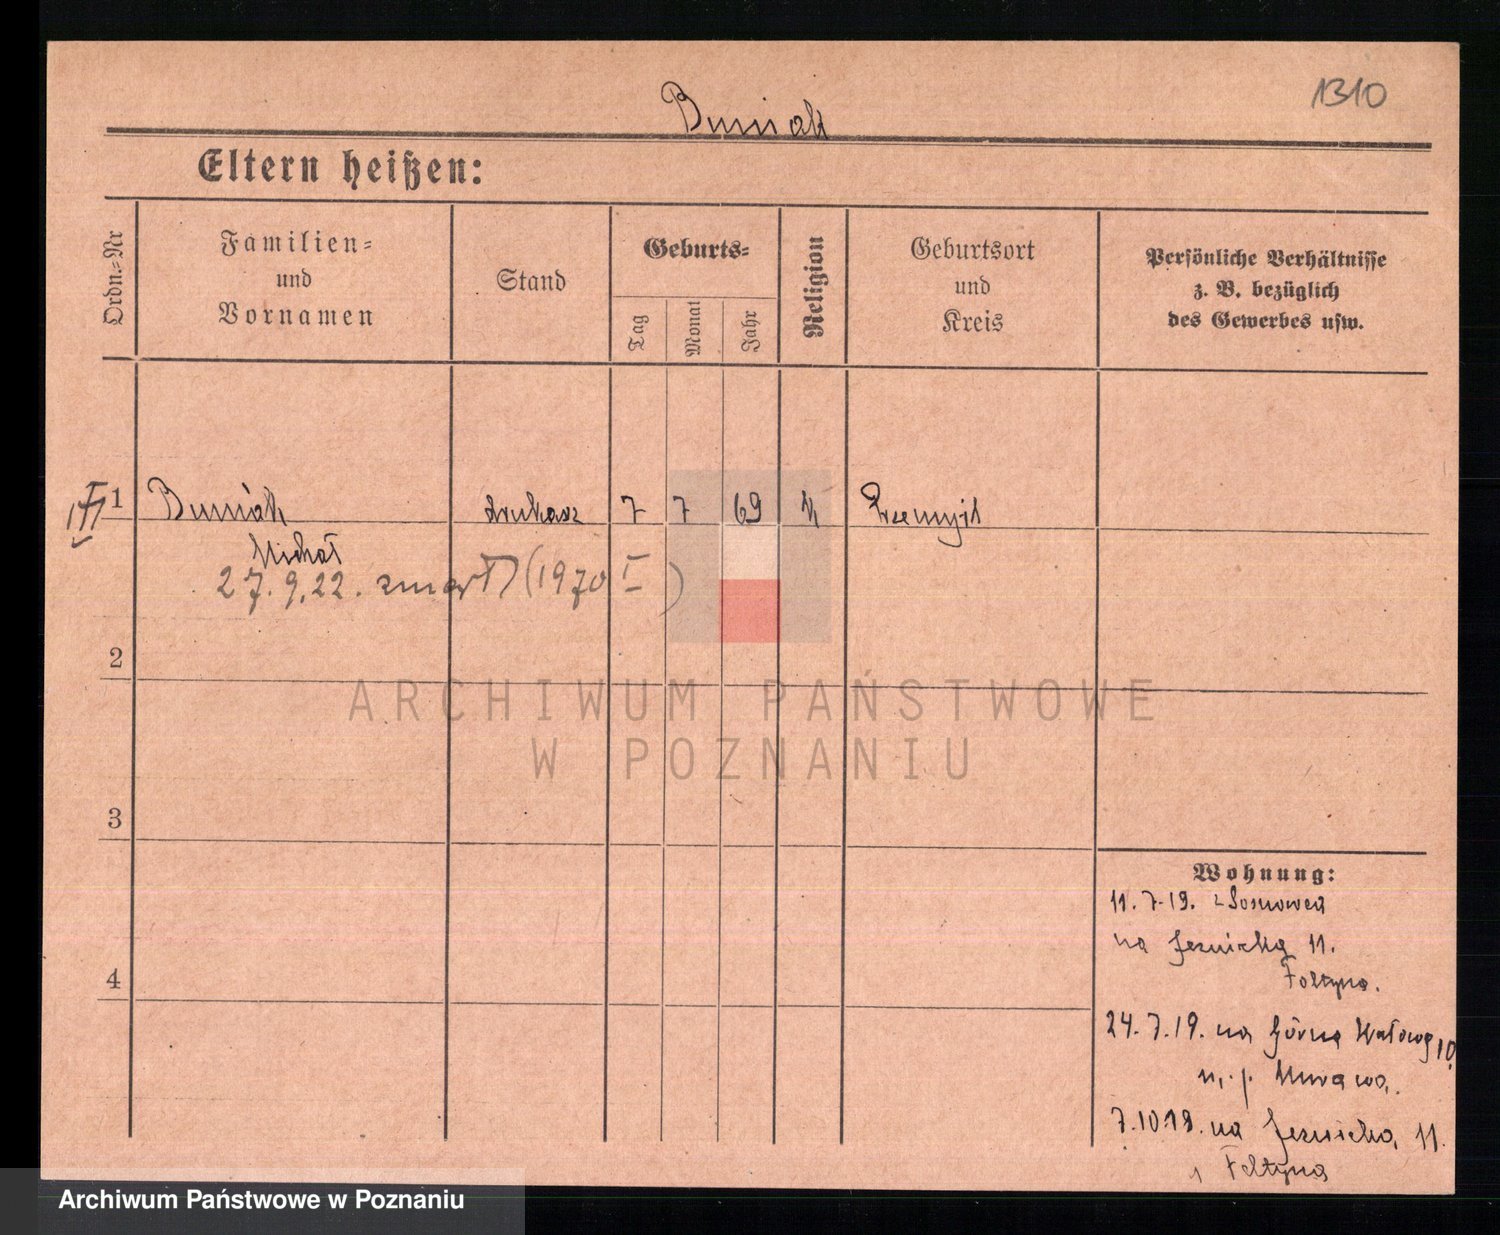 1310
Buniak
Eltern heißen:
Ordn.=Nr
Familien=
und
Vornamen
Stand
Geburts=
Tag
Monat
Jahr
Religion
Geburtsort
und
Kreis
Persönliche Verhältnisse
z. B. bezüglich
des Gewerbes usw.
1
Buniak
drukarz
7
7
69
k
Przemyśl
Michał
27.9.22. zmarł (1970 I)
2
ARCHIWUM PAŃSTWOWE
W POZNANIU
3
4
Wohnung:
11.7.19. z Sosnowca
na Jezuicką 11.
Foltyna.
24.7.19. na Górną Wałową 10
u. p.
7.10.19. na Jezuicką 11.
Foltyna
Archiwum Państwowe w Poznaniu